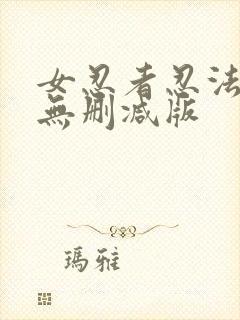 女忍者忍法
無删减版
瑪雅